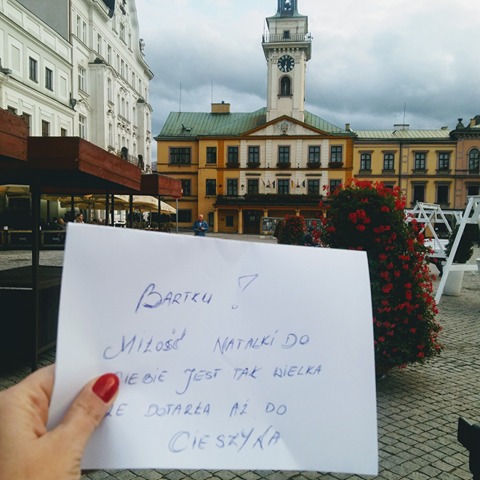 BARTKU !
MIŁOŚĆ NATALKI DO
CIEBIE JEST TAK WIELKA
ŻE DOTARŁA AŻ DO
CIESZYNA